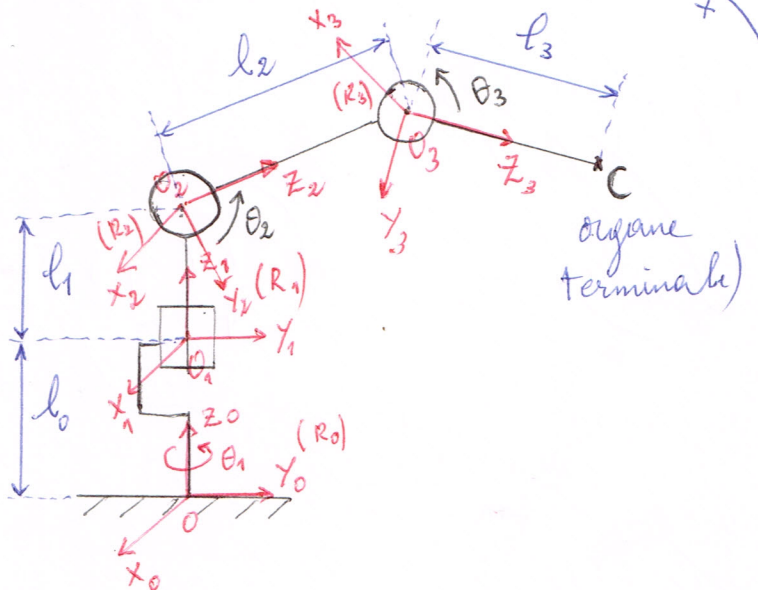 X₃
l₂
l₃
(R₃)
θ₃
O₃
Z₃
Y₃
C
organe
terminale)
O₂
Z₂
θ₂
(R₂)
X₂
Y₂
l₁
Z₁
(R₁)
Y₁
O₁
X₁
l₀
Z₀
θ₁
(R₀)
Y₀
O
X₀